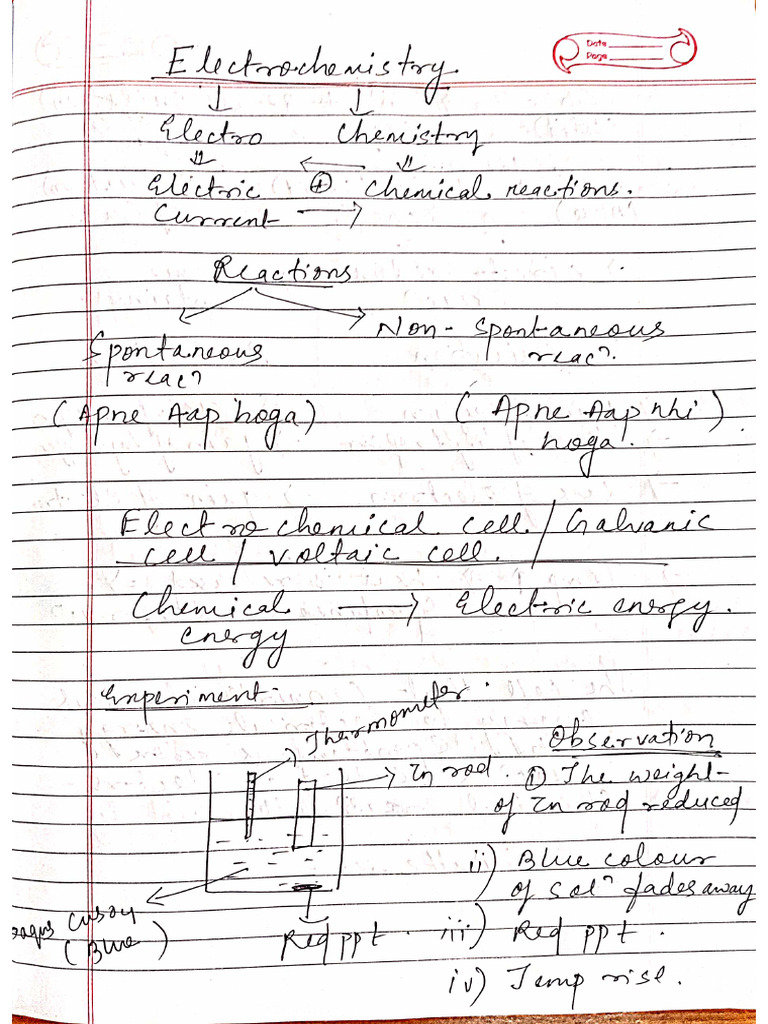 Electrochemistry.
Date
Page
↓ ↓
Electro Chemistry
⇓ ← ⇓
Electric ⊕ Chemical reactions.
Current →
Reactions
Spontaneous
reacⁿ
Non-Spontaneous
reacⁿ.
(Apne Aap hoga)
(Apne Aap nhi)
hoga.
Electrochemical cell / Galvanic
cell / voltaic cell.
Chemical → Electric energy.
energy
Experiment-
Thermometer.
Observation
Zn rod. ① The weight-
of Zn rod reduced
ii) Blue colour
of solⁿ fades away
CuSO4
(Blue)
Red ppt. iii) Red ppt.
iv) Temp rise.